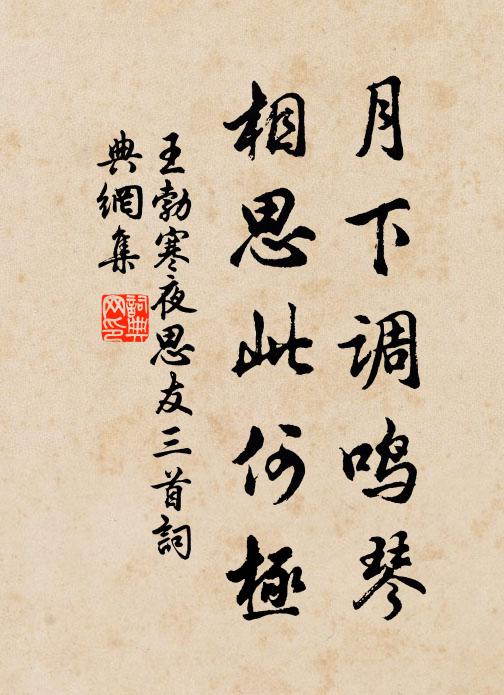 月下调鸣琴
相思此何極
王勃寒夜思友三首詞
典網集
詞典
网印